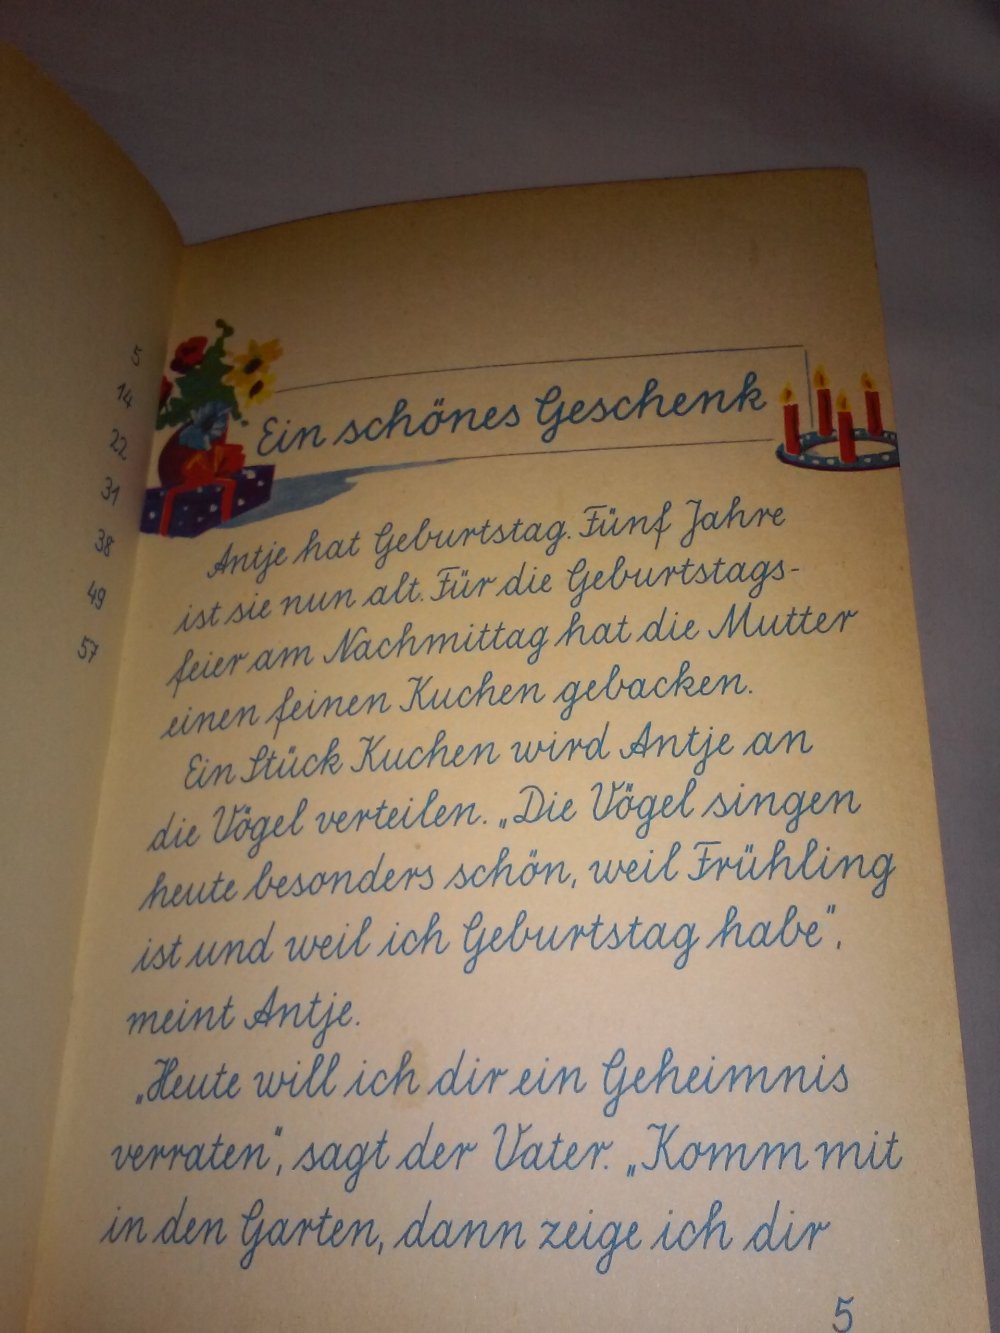 5
14
22
31
38
49
57
Ein schönes Geschenk
Antje hat Geburtstag. Fünf Jahre
ist sie nun alt. Für die Geburtstags-
feier am Nachmittag hat die Mutter
einen feinen Kuchen gebacken.
Ein Stück Kuchen wird Antje an
die Vögel verteilen. „Die Vögel singen
heute besonders schön, weil Frühling
ist und weil ich Geburtstag habe“,
meint Antje.
„Heute will ich dir ein Geheimnis
verraten“, sagt der Vater. „Komm mit
in den Garten, dann zeige ich dir
5